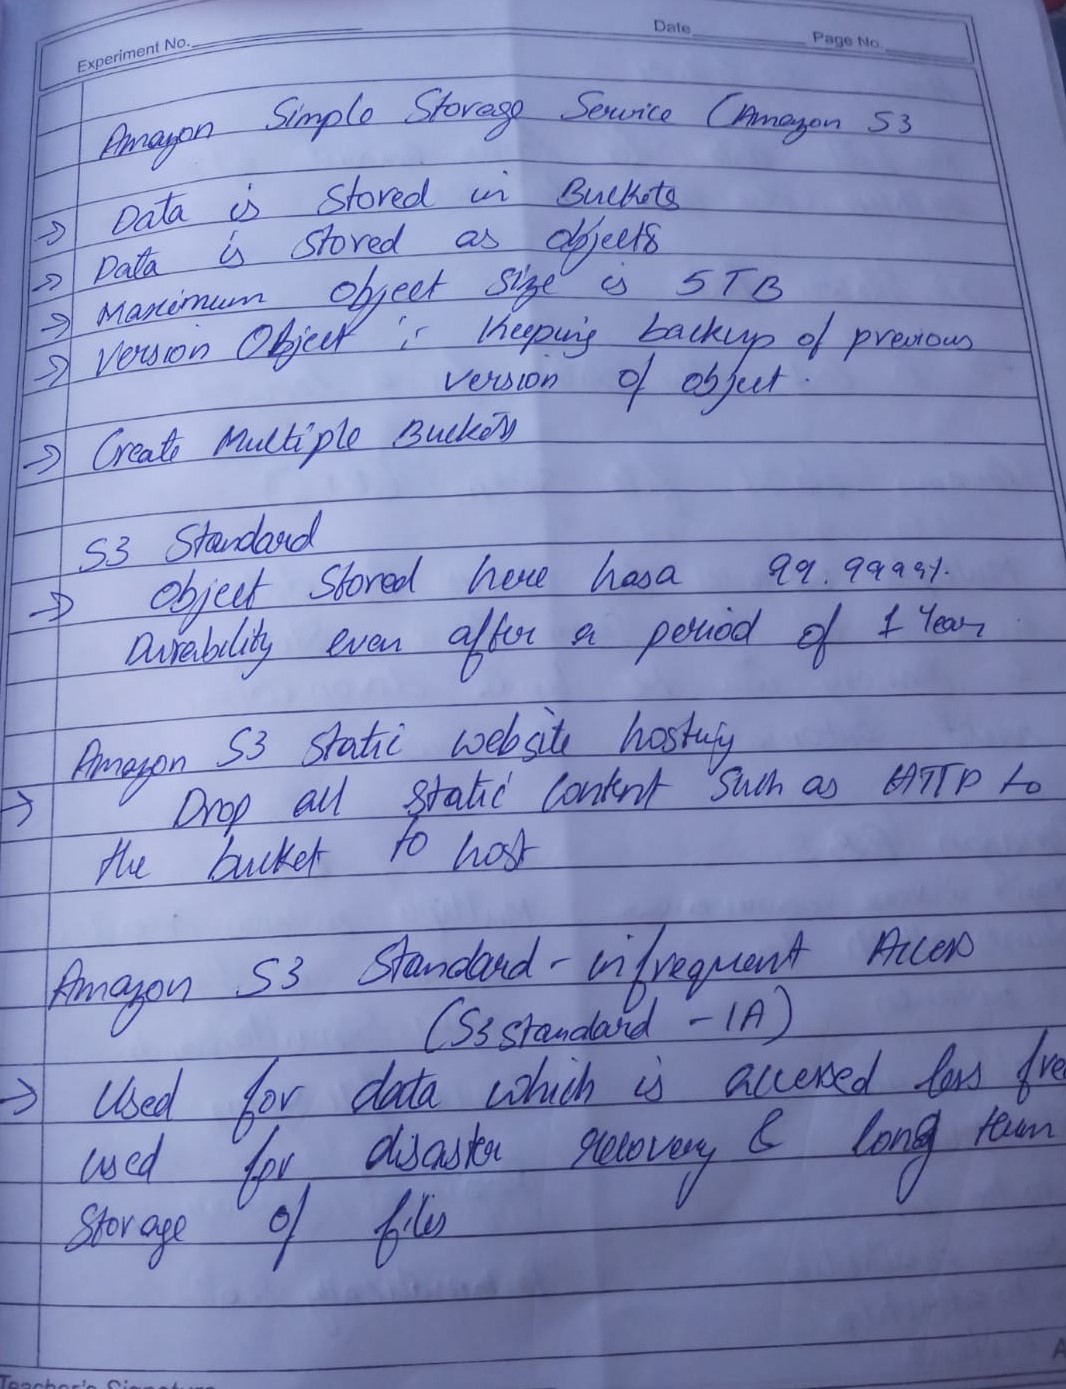 Experiment No.
Date
Page No.
Amazon Simple Storage Service (Amazon S3
→ Data is stored in Buckets
→ Data is stored as objects
→ Maximum object size is 5TB
→ Version Object :- Keeping backup of previous
version of object.
→ Create Multiple Buckets
S3 Standard
→ Object Stored here has a 99.9999%.
Durability even after a period of 1 Year
Amazon S3 static website hosting
→ Drop all static content such as HTTP to
the bucket to host
Amazon S3 Standard - infrequent Access
(S3 standard - IA)
→ Used for data which is accessed less fre
used for disaster recovery & long term
storage of files
Teacher's Signature